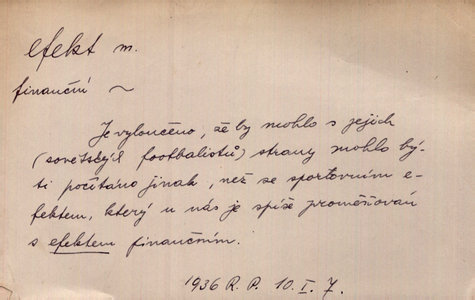 efekt m.
finanční ~
Je vyloučeno, že by mohlo s jejich
(sovětských footbalistů) strany mohlo bý-
ti počítáno jinak, než se sportovním e-
fektem, který u nás je spíše proměňován
s efektem finančním.
1936 R. P. 10. I. 7.